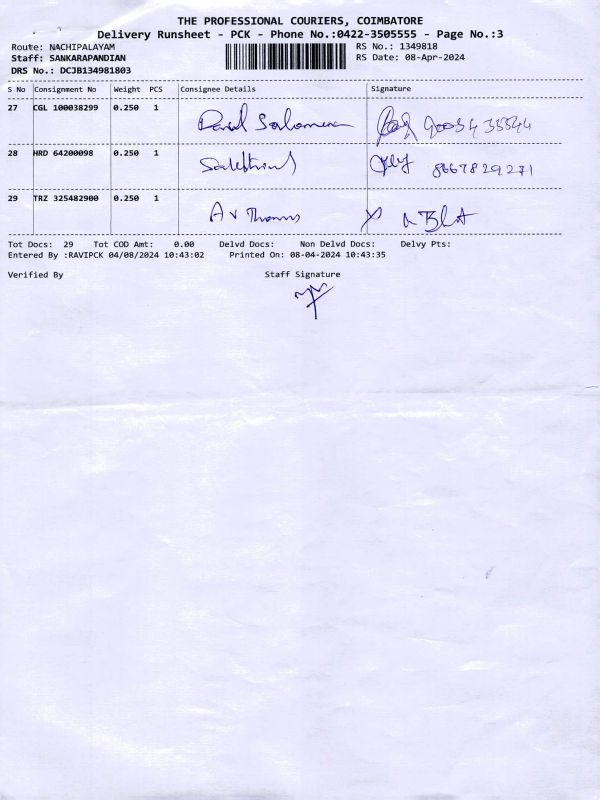 THE PROFESSIONAL COURIERS, COIMBATORE
Delivery Runsheet - PCK - Phone No.:0422-3505555 - Page No.:3
Route: NACHIPALAYAM
Staff: SANKARAPANDIAN
DRS No.: DCJB134981803
RS No.: 1349818
RS Date: 08-Apr-2024
S No Consignment No Weight PCS Consignee Details Signature
27 CGL 100038299 0.250 1 David Solomon
28 HRD 64200098 0.250 1 8667829271
29 TRZ 325482900 0.250 1 A V Thomas
Tot Docs: 29 Tot COD Amt: 0.00 Delvd Docs: Non Delvd Docs: Delvy Pts:
Entered By :RAVIPCK 04/08/2024 10:43:02 Printed On: 08-04-2024 10:43:35
Verified By Staff Signature